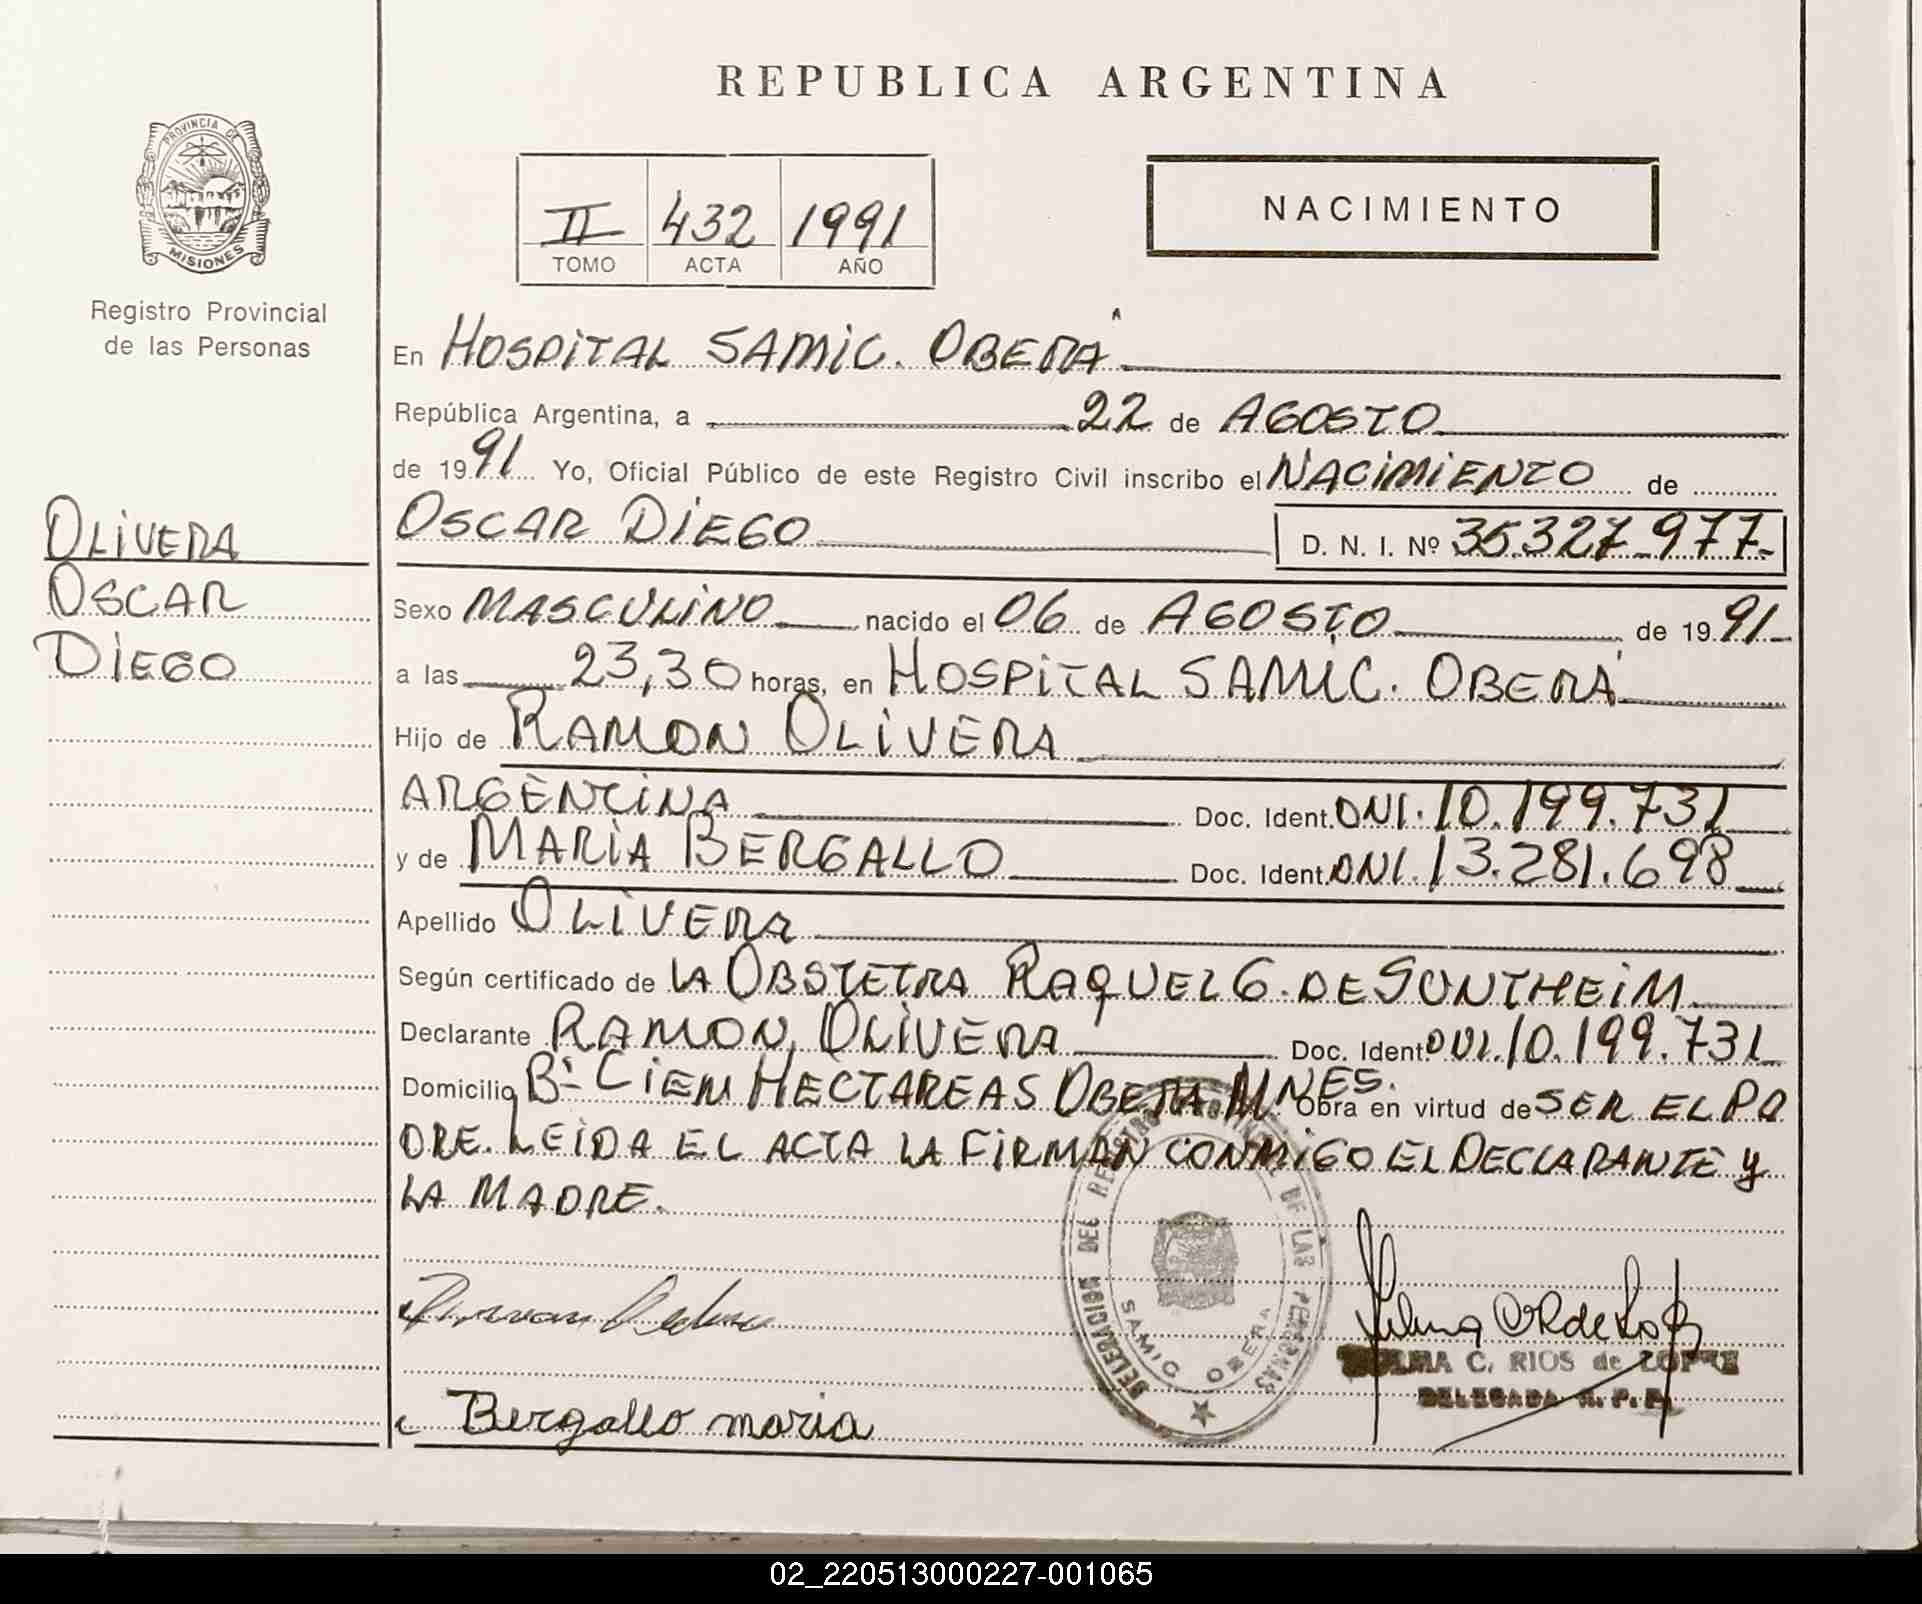 REPUBLICA ARGENTINA
PROVINCIA DE
MISIONES
Registro Provincial
de las Personas
II 432 1991
TOMO ACTA AÑO
NACIMIENTO
En HOSPITAL SAMIC. OBERÁ
República Argentina, a 22 de AGOSTO
de 1991 Yo, Oficial Público de este Registro Civil inscribo el NACIMIENTO de
OSCAR DIEGO D. N. I. Nº 35.327.977.-
OLIVERA
OSCAR
DIEGO
Sexo MASCULINO nacido el 06 de AGOSTO de 1991.-
a las 23,30 horas, en HOSPITAL SAMIC. OBERÁ
Hijo de RAMON OLIVERA
ARGENTINA Doc. Ident. DNI. 10.199.731
y de MARIA BERGALLO Doc. Ident. DNI. 13.281.698
Apellido OLIVERA
Según certificado de LA OBSTETRA RAQUEL G. DE SONTHEIM.
Declarante RAMON OLIVERA Doc. Ident. DNI. 10.199.731
Domicilio Bº CIEN HECTAREAS OBERA MNES. Obra en virtud de SER EL PA
DRE. LEIDA EL ACTA LA FIRMAN CONMIGO EL DECLARANTE y
LA MADRE.
DELEGACION DEL REGISTRO PROVINCIAL DE LAS PERSONAS
SAMIC OBERA
C. RIOS de LOPEZ
DELEGADA R. P. P.
Bergallo maria
02_220513000227-001065